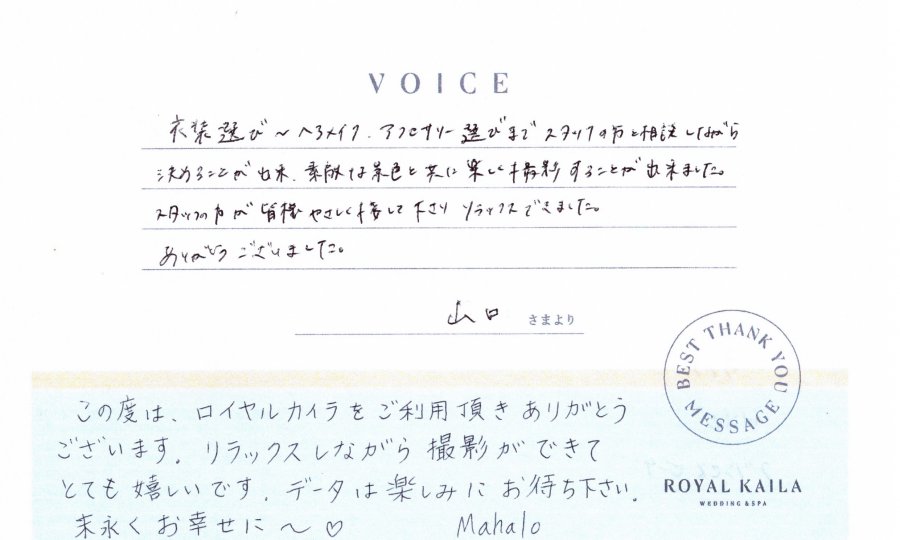 VOICE
衣装選び〜ヘアメイク、アクセサリー選びまでスタッフの方と相談しながら
決めることが出来、素敵な景色と共に楽しく撮影することが出来ました。
スタッフの方が皆様やさしく接して下さりリラックスできました。
ありがとうございました。
山口 さまより
BEST THANK YOU MESSAGE
この度は、ロイヤルカイラをご利用頂きありがとう
ございます。リラックスしながら撮影ができて
とても嬉しいです。データは楽しみにお待ち下さい。
末永くお幸せに〜♡ Mahalo
ROYAL KAILA
WEDDING & SPA